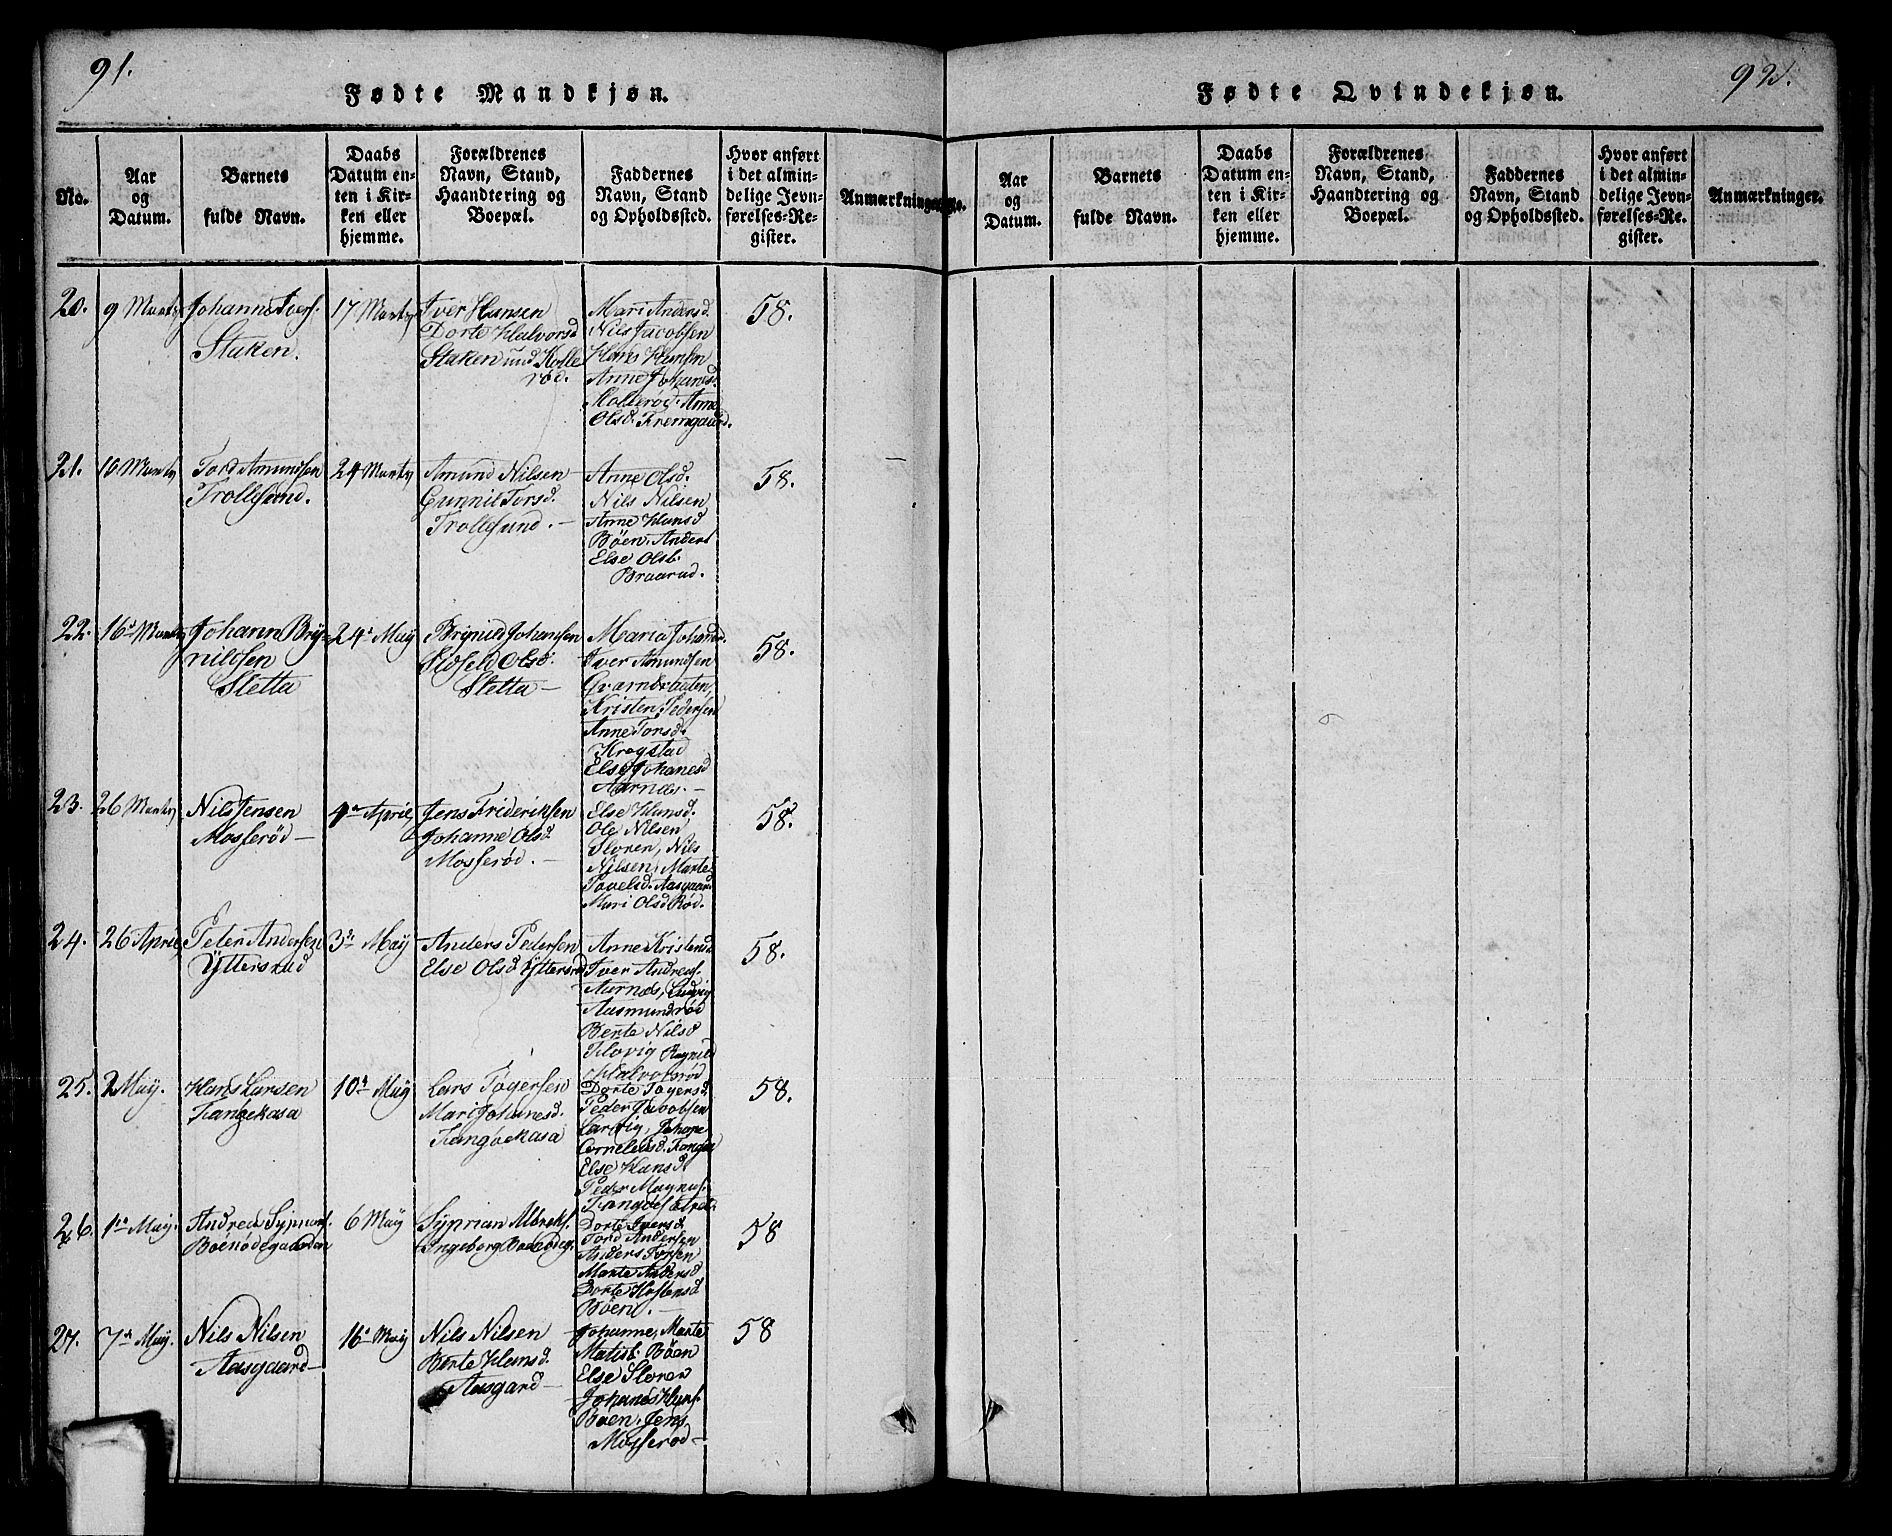 91.
Fødte Mandkjøn.
No.
Aar
og
Datum.
Barnets
fulde Navn.
Daabs
Datum en-
ten i Kir-
ken eller
hjemme.
Forældrenes
Navn, Stand,
Haandtering og
Boepæl.
Faddernes
Navn, Stand
og Opholdssted.
Hvor anført
i det almin-
delige Jevn-
førelses-Re-
gister.
Anmærkninger.
20.
9 Martz
Johannes Ivers.
Staken.
17 Martz
Iver Hansen
Dorte Halvorsd
Staken und Kolle
rød.
Mari Andersd
Nils Jacobsen
Hans Hansen
Anne Johansd.
Kollerød. Anne
Olsd. Fremgaard.
58.
21.
16 Martz
Tord Amundsen
Trollsund.
24 Martz
Amund Nilsen
Gunnil Torsd.
Trollsund. —
Anne Olsd.
Nils Nilsen
Anne Hansd
Böen, Anders
Else Olsd.
Braarud.
58.
22.
16d Martz
Johann Bry-
nildsen
Sletta
24d May
Brynild Johansen
Olsd.
Sletta —
Maria Johansd.
Iver Amundsen
Kristen Pedersen
Anne Torsd.
Krogstad
Else Johanesd
Aarnæs. —
58.
23.
26 Martz
Nils Jensen
Mosserød —
4de April
Jens Frideriksen
Johanne Olsd.
Mosserød. —
Else Hansd.
Ole Nilsen
Sloren, Nils
Nilsen, Marte
Povelsd. Aasgaard
Mari Olsd Rød.
58.
24.
26 April
Peter Andersen
Yttersrud
3de May
Anders Pedersen
Else Olsd Yttersrød
Anne Kristensd
Iver Andreas.
Aarnæs, Ludvig
Aasmundrød
Berte Nilsd
Ragnild
Halvorsrød
58.
25.
2 May.
Hans Larsen
Tangekasa
10d May
Lars Tögersen
Mari Johanesd.
Tangekasa
Dorte Tögersd.
Peder Jacobsen
Cornelisd. Tangen
Else Hansd.
Peder Magnus.
58.
26.
1ste May.
Andrea Syprians.
Boenødegaarden
6 May
Syprian Albreks.
Ingeborg Boenødeg.
Dorte Iversd.
Tord Andersen
Anders Torsen
Marte Andersd
Dorte
Böen. —
58
27.
7de May.
Nils Nilsen
Aasgaard —
16d May
Nils Nilsen
Berte Hansd.
Aasgard —
Johanne, Marte
Matisd. Böen
Else Sloren
Johanes Hans.
Böen, Jens
Mosserød —
58
92.
Fødte Qvindekjøn.
No.
Aar
og
Datum.
Barnets
fulde Navn.
Daabs
Datum en-
ten i Kir-
ken eller
hjemme.
Forældrenes
Navn, Stand,
Haandtering og
Boepæl.
Faddernes
Navn, Stand
og Opholdssted.
Hvor anført
i det almin-
delige Jevn-
førelses-Re-
gister.
Anmærkninger.